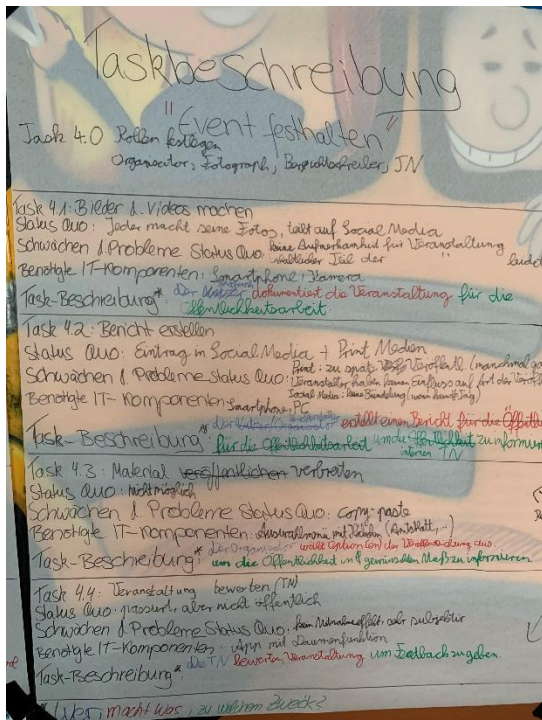 Taskbeschreibung
"Event festhalten"
Task 4.0 Rollen festlegen
Organisator, Fotograph, Berichtschreiber, TN
Task 4.1: Bilder & Videos machen
Status Quo: Jeder macht seine Fotos, lält auf Social Media
Schwächen & Probleme Status Quo: keine Aufmerksamkeit für Veranstaltung
inhaltlicher Teil der "
Benötigte IT-Komponenten: Smartphone, Kamera
Task-Beschreibung* Der dokumentiert die Veranstaltung für die
Öffentlichkeitsarbeit
Task 4.2: Bericht erstellen
Status Quo: Eintrag in Social Media + Print Medien
Schwächen & Probleme Status Quo: Print: zu spät Veröffentl. (manchmal
Veranstalter haben keinen Einfluss auf Art der
Social Media: keine Bündelung
Benötigte IT-Komponenten Smartphone, PC
erstellt einen Bericht für die
Task-Beschreibung* für die Öffentlichkeitsarbeit um die Öffentlichkeit zu informieren
internen TN
Task 4.3: Material veröffentlichen verbreiten
Status Quo: nicht möglich
Schwächen & Probleme Status Quo: copy-paste
Benötigte IT-Komponenten: Auswahlmenü mit (Amtsblatt,...)
* Der Organisator wählt Option(en) der Veröffentlichung aus
Task-Beschreibung: um die Öffentlichkeit in gewünschten Maß zu informieren
Task 4.4: Veranstaltung bewerten (TN)
Status Quo: passiert, aber nicht öffentlich
Schwächen & Probleme Status Quo: kein, sehr subjektiv
Benötigte IT-Komponenten: App mit Daumenfunktion
Task-Beschreibung* die TN bewerten Veranstaltung um Feedback zu geben.
* Wer, macht was, zu welchem Zweck?